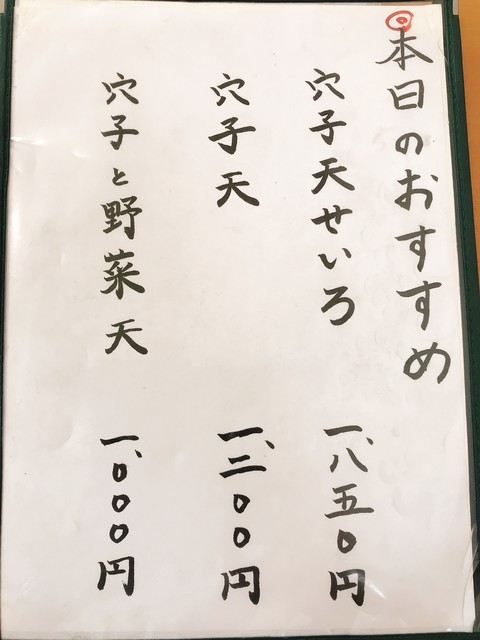 ◎本日のおすすめ
穴子天せいろ 一、八五〇円
穴子天 一、三〇〇円
穴子と野菜天 一、〇〇〇円